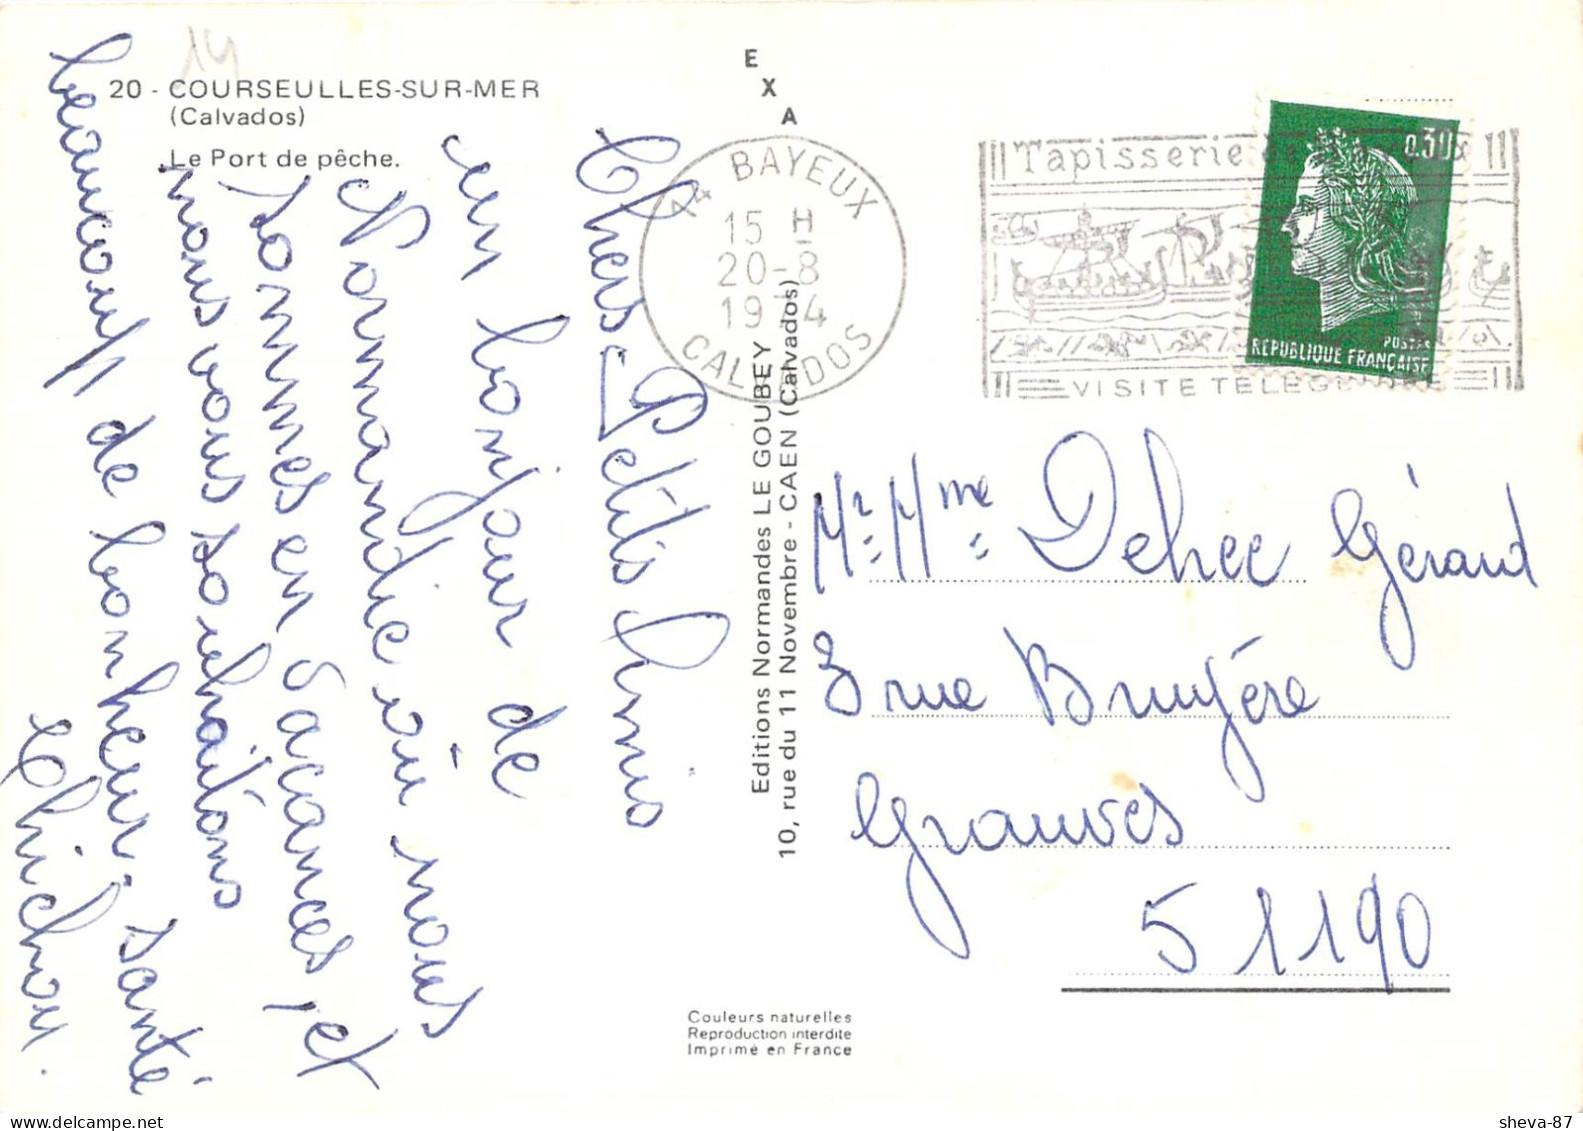 14
20 - COURSEULLES-SUR-MER
(Calvados)
Le Port de pêche.
E
X
A
Chers Petits Amis
un bonjour de
Normandie où nous
sommes en vacances, et
nous vous souhaitons
beaucoup de bonheur, santé
Chichou.
BAYEUX
15 H
20-8
19 4
CALVADOS
Tapisserie de
VISITE TELEG
0,30
POSTES
REPUBLIQUE FRANÇAISE
Editions Normandes LE GOUBEY
10, rue du 11 Novembre - CAEN (Calvados)
Mr. Mme Dehee Gérard
3 rue Bruyère
Grauves
51190
Couleurs naturelles
Reproduction interdite
Imprimé en France
sheva-87